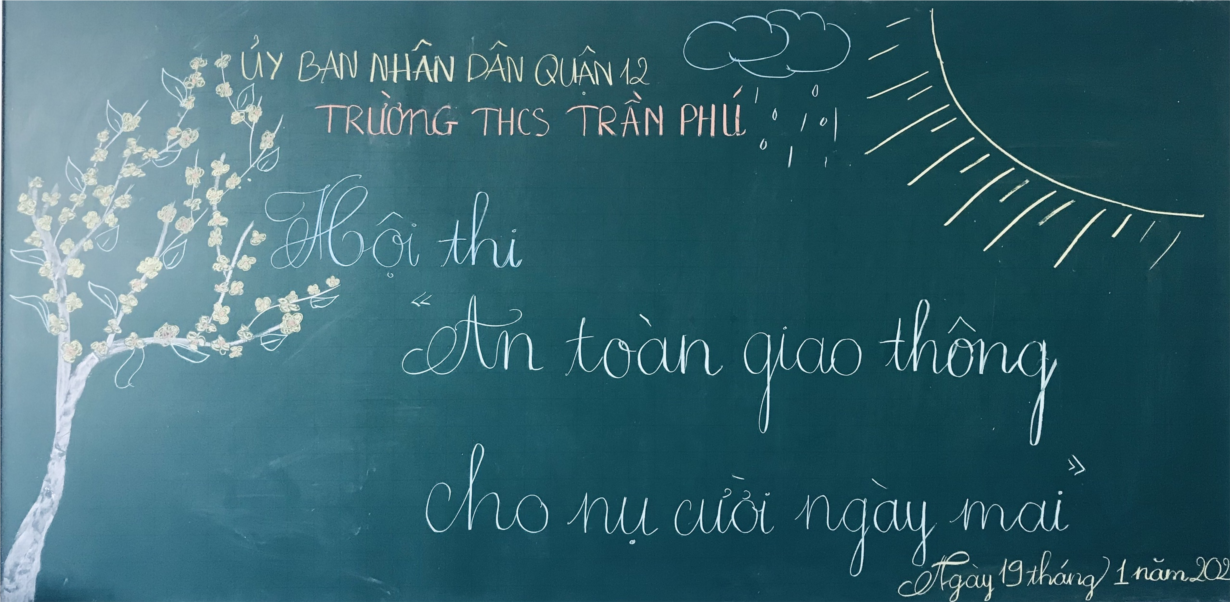 ỦY BAN NHÂN DÂN QUẬN 12
TRƯỜNG THCS TRẦN PHÚ
Hội thi
"An toàn giao thông
cho nụ cười ngày mai"
Ngày 19 tháng 1 năm 202